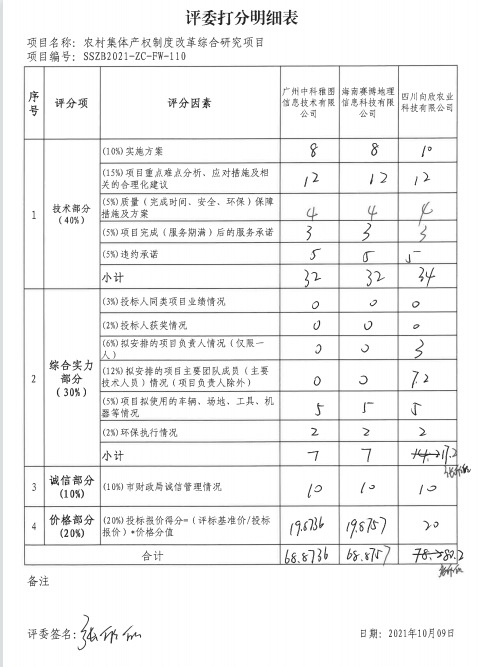 评委打分明细表
项目名称: 农村集体产权制度改革综合研究项目
项目编号: SSZB2021-ZC-FW-110
序号 评分项 评分因素 广州中科雅图信息技术有限公司 海南赛博地理信息科技有限公司 四川向欣农业科技有限公司
1 技术部分(40%)
(10%)实施方案 8 8 10
(15%)项目重点难点分析、应对措施及相关的合理化建议 12 12 12
(5%)质量(完成时间、安全、环保)保障措施及方案 4 4 4
(5%)项目完成(服务期满)后的服务承诺 3 3 3
(5%)违约承诺 5 5 5
小计 32 32 34
2 综合实力部分(30%)
(3%)投标人同类项目业绩情况 0 0 0
(2%)投标人获奖情况 0 0 0
(6%)拟安排的项目负责人情况(仅限一人) 0 0 3
(12%)拟安排的项目主要团队成员(主要技术人员)情况(项目负责人除外) 0 0 7.2
(5%)项目拟使用的车辆、场地、工具、机器等情况 5 5 5
(2%)环保执行情况 2 2 2
小计 7 7 17.2
3 诚信部分(10%) (10%)市财政局诚信管理情况 10 10 10
4 价格部分(20%) (20%)投标报价得分=(评标基准价/投标报价)*价格分值 19.8736 19.8757 20
合计 68.8736 68.8757
备注
评委签名:
日期: 2021年10月09日